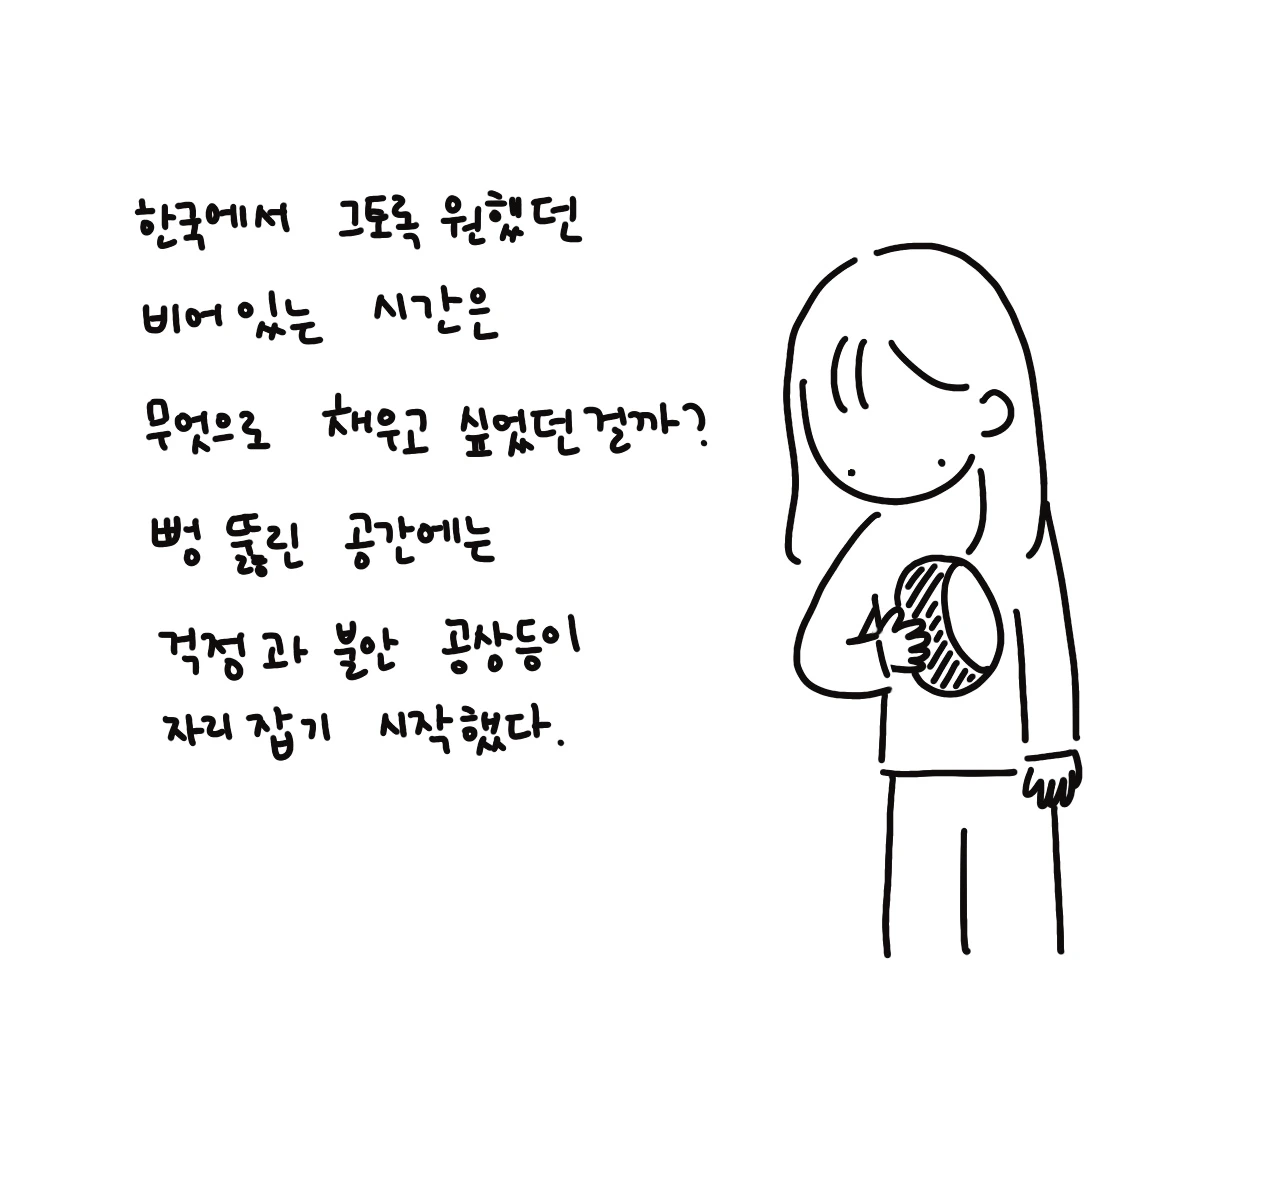 한국에서 그토록 원했던
비어 있는 시간은
무엇으로 채우고 싶었던걸까?
뻥 뚫린 공간에는
걱정과 불안 공상등이
자리 잡기 시작했다.